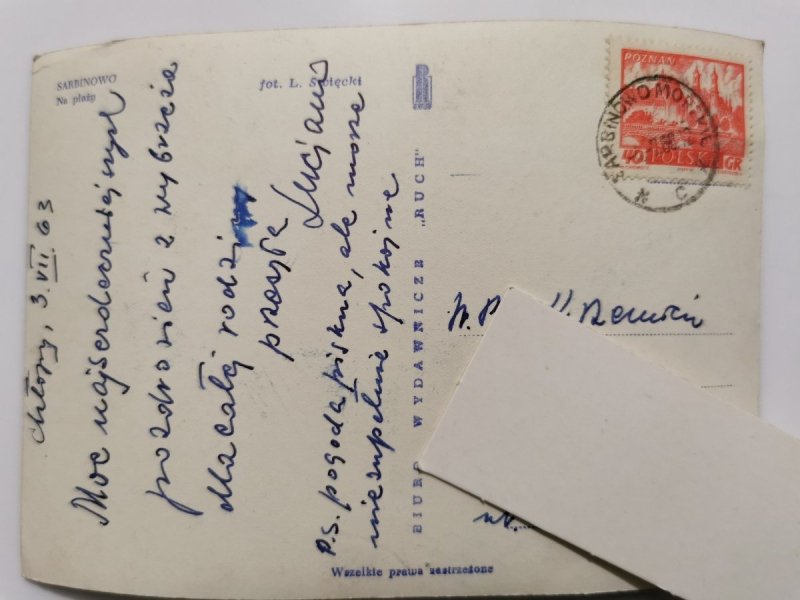 SARBINOWO
Na plaży
fot. L. Święcki
Chłopy, 3.VII.63
Moc najserdeczniejszych
pozdrowień z wybrzeża
dla całej rodziny
przesyła Lucjan
P.S. pogoda piękna, ale morze
niezupełnie spokojne
BIURO WYDAWNICZE „RUCH"
POZNAŃ
40 POLSKA GR
SARBINOWO MORSKIE
W. P.
ul.
Wszelkie prawa zastrzeżone